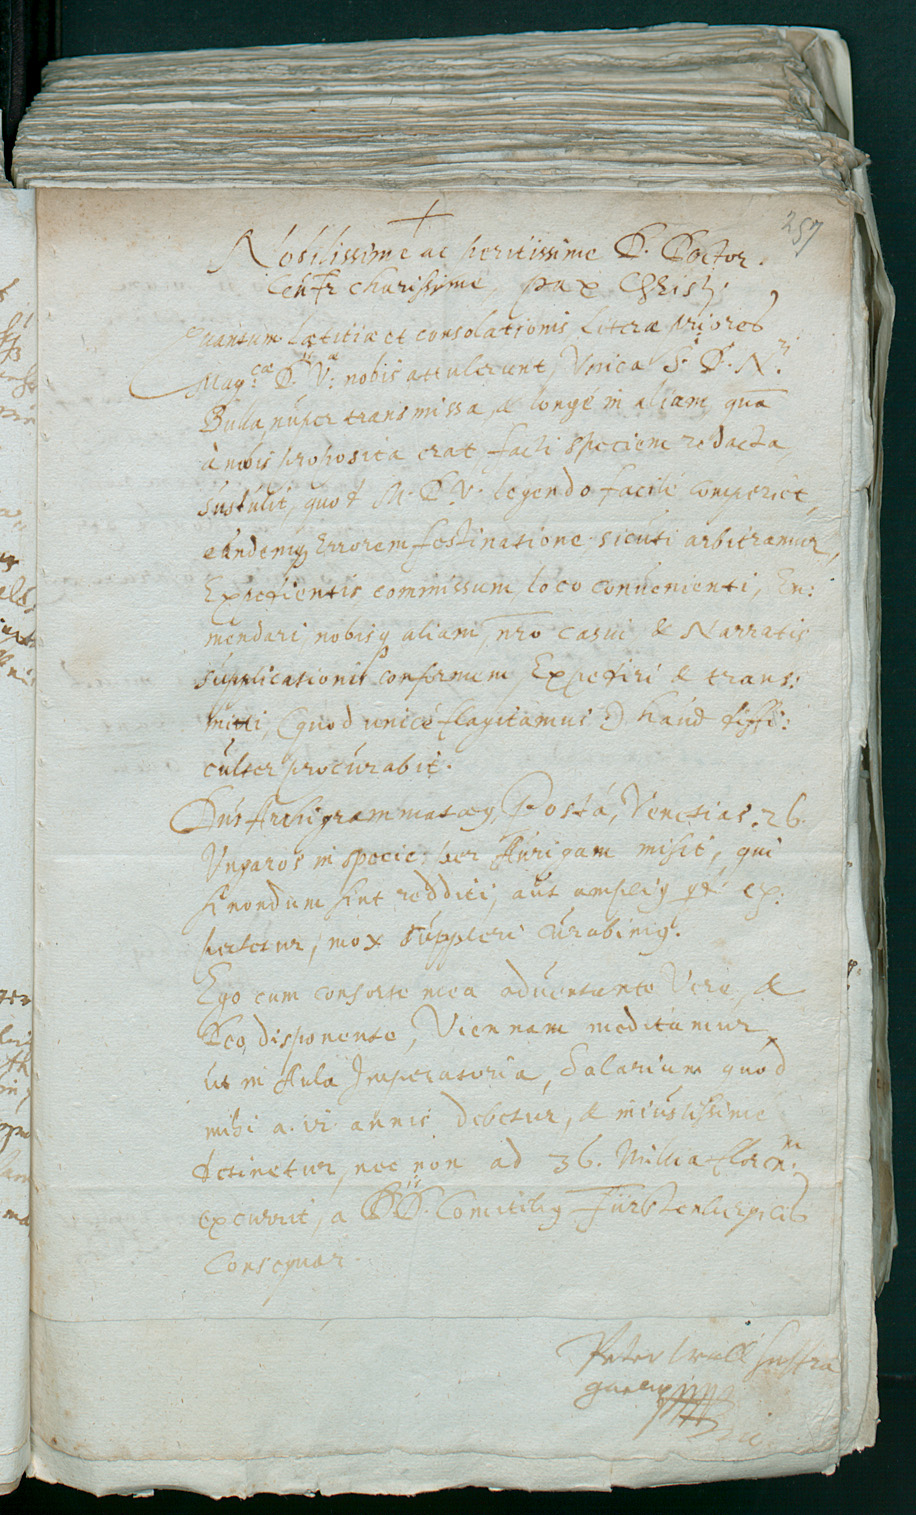 257
Nobilissime ac peritissime D. Doctor.
charissime, pax Christi.
Quantum lætitiæ et consolationis literæ priores
Mag.cæ D. V.æ nobis attulerunt, Unica S. D. N.ri
Bulla nuper transmissa, & longe in aliam, quā
à nobis proposita erat, facti speciem redacta,
sustulit, quod M. D. V. legendo facile comperiet,
eundemq Errorem festinatione sicuti arbitramur,
Expedientis commissum, loco conuenienti, Em:
mendari, nobisq aliam, pro casui & Narratis
supplicationis conformem Expediri & trans:
mitti, (quod unicè flagitamus) haud diffi:
culter procurabit.
Posta, Venetias. 26.
Ungaros in specie per Aurigam misit, qui
si nondum sint redditi, aut ampliq ex:
pectetur, mox suppleri curabimq.
Ego cum consorte mea aduentante Vere, &
Deo disponente, Viennam meditamur,
ut in Aula Imperatoria, Salarium quod
mihi a. vi annis debetur, & iniustissime
detinetur, nec non ad 36. Millia floren.
excurrit, a DD. Comitibq Fürstenbergicis
Consequar.
Peter